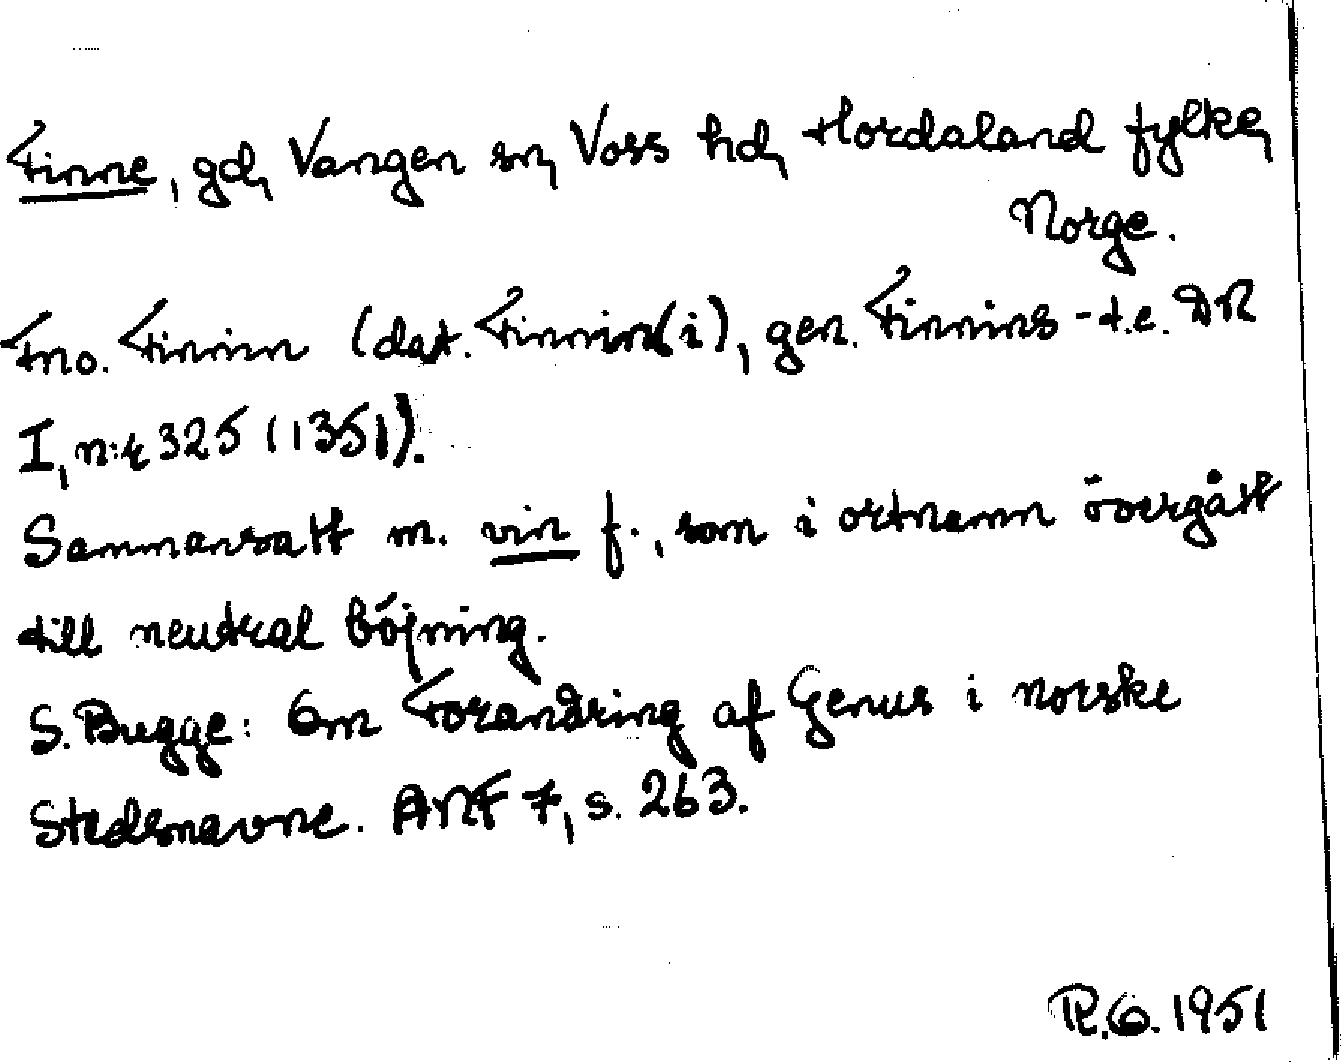 Finne, gd, Vangen sn, Voss hd, Hordaland fylke,
Norge.
Fno. Finnin (dat. Finnin(i), gen. Finnins - t.e. DN
I, n:r 325 (1351).
Sammansatt m. vin f., som i ortnamn övergått
till neutral böjning.
S. Bugge: Om Forandring af Genus i norske
Stedsnavne. ANF 7, s. 263.
R.O. 1951